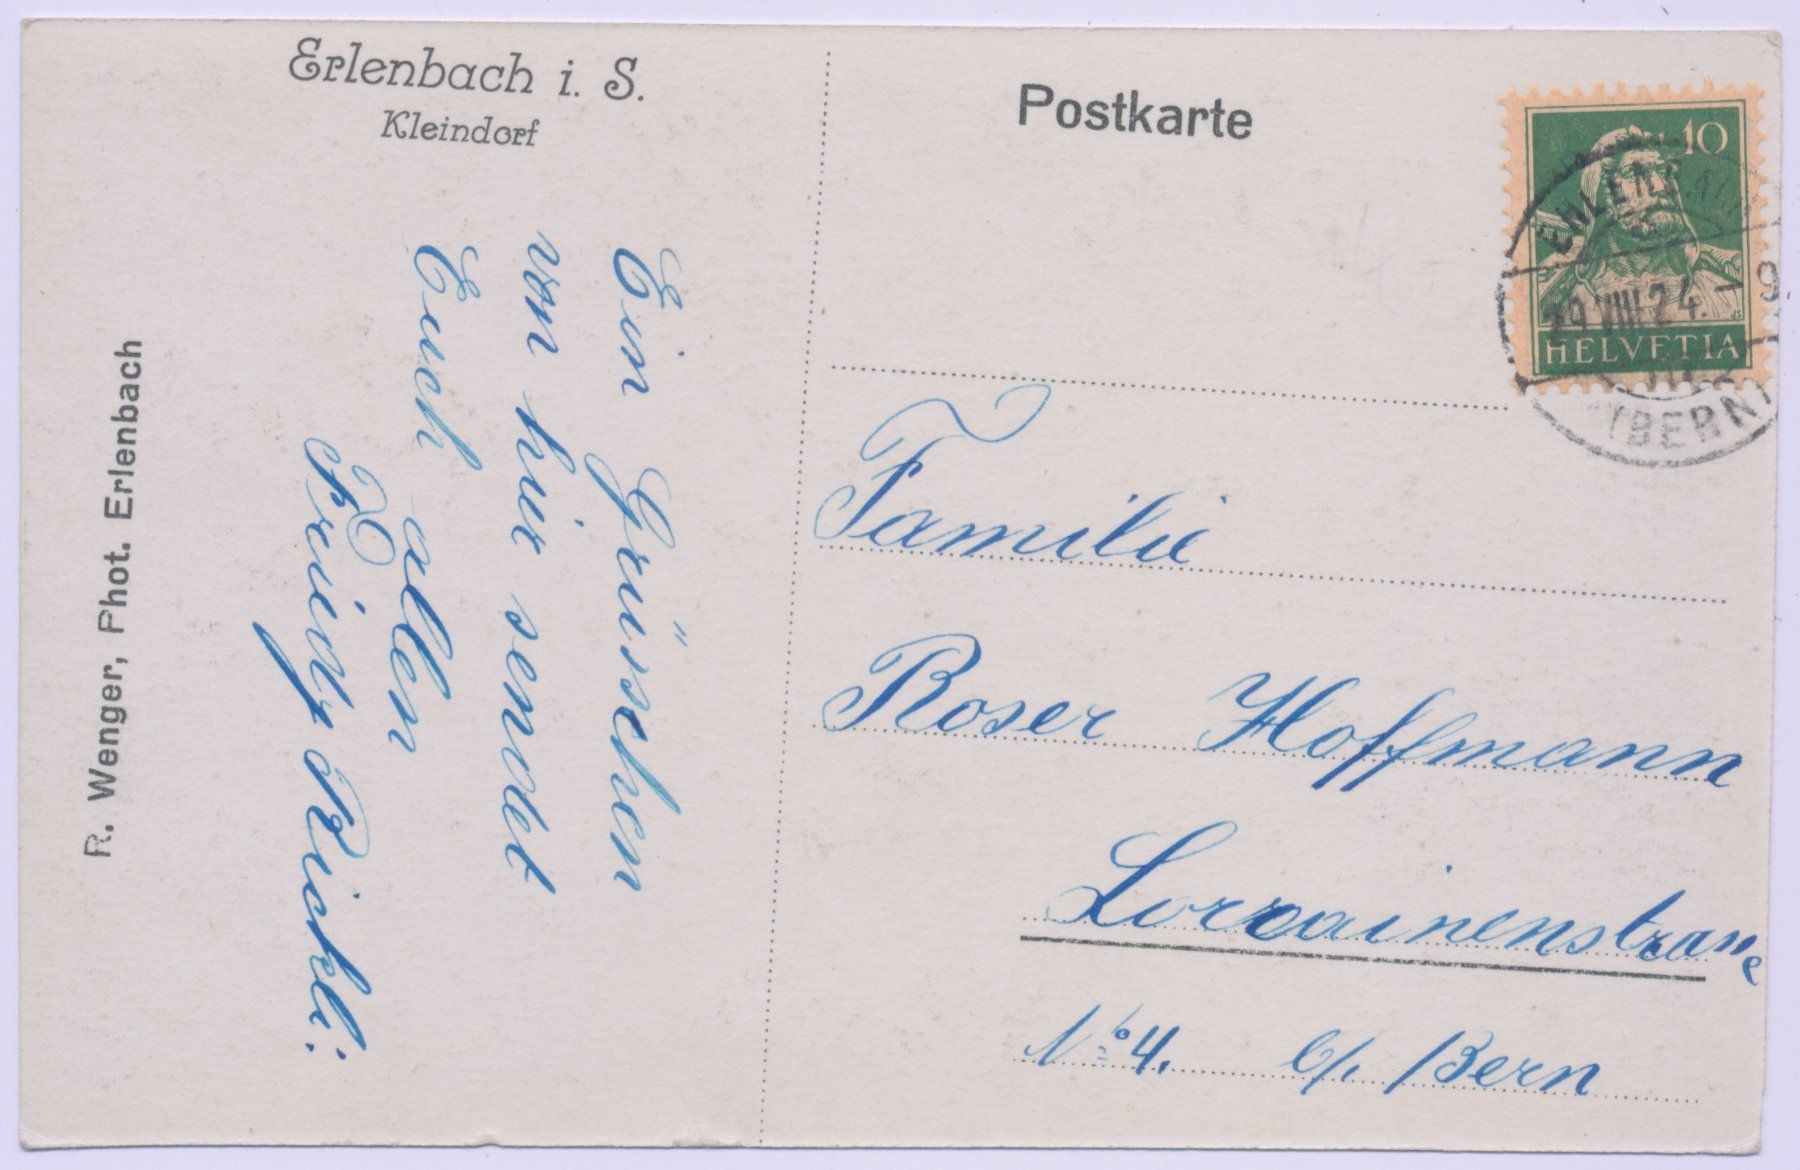 Erlenbach i. S.
Kleindorf
Postkarte
10
HELVETIA
ERLENBACH
29.VIII.24.-9
(BERN)
R. Wenger, Phot. Erlenbach
Ein Grüsschen
von hier sendet
Euch allen
Friedy Rickli:
Familie
Roser Hoffmann
Lorrainenstrasse
No 4. b/. Bern